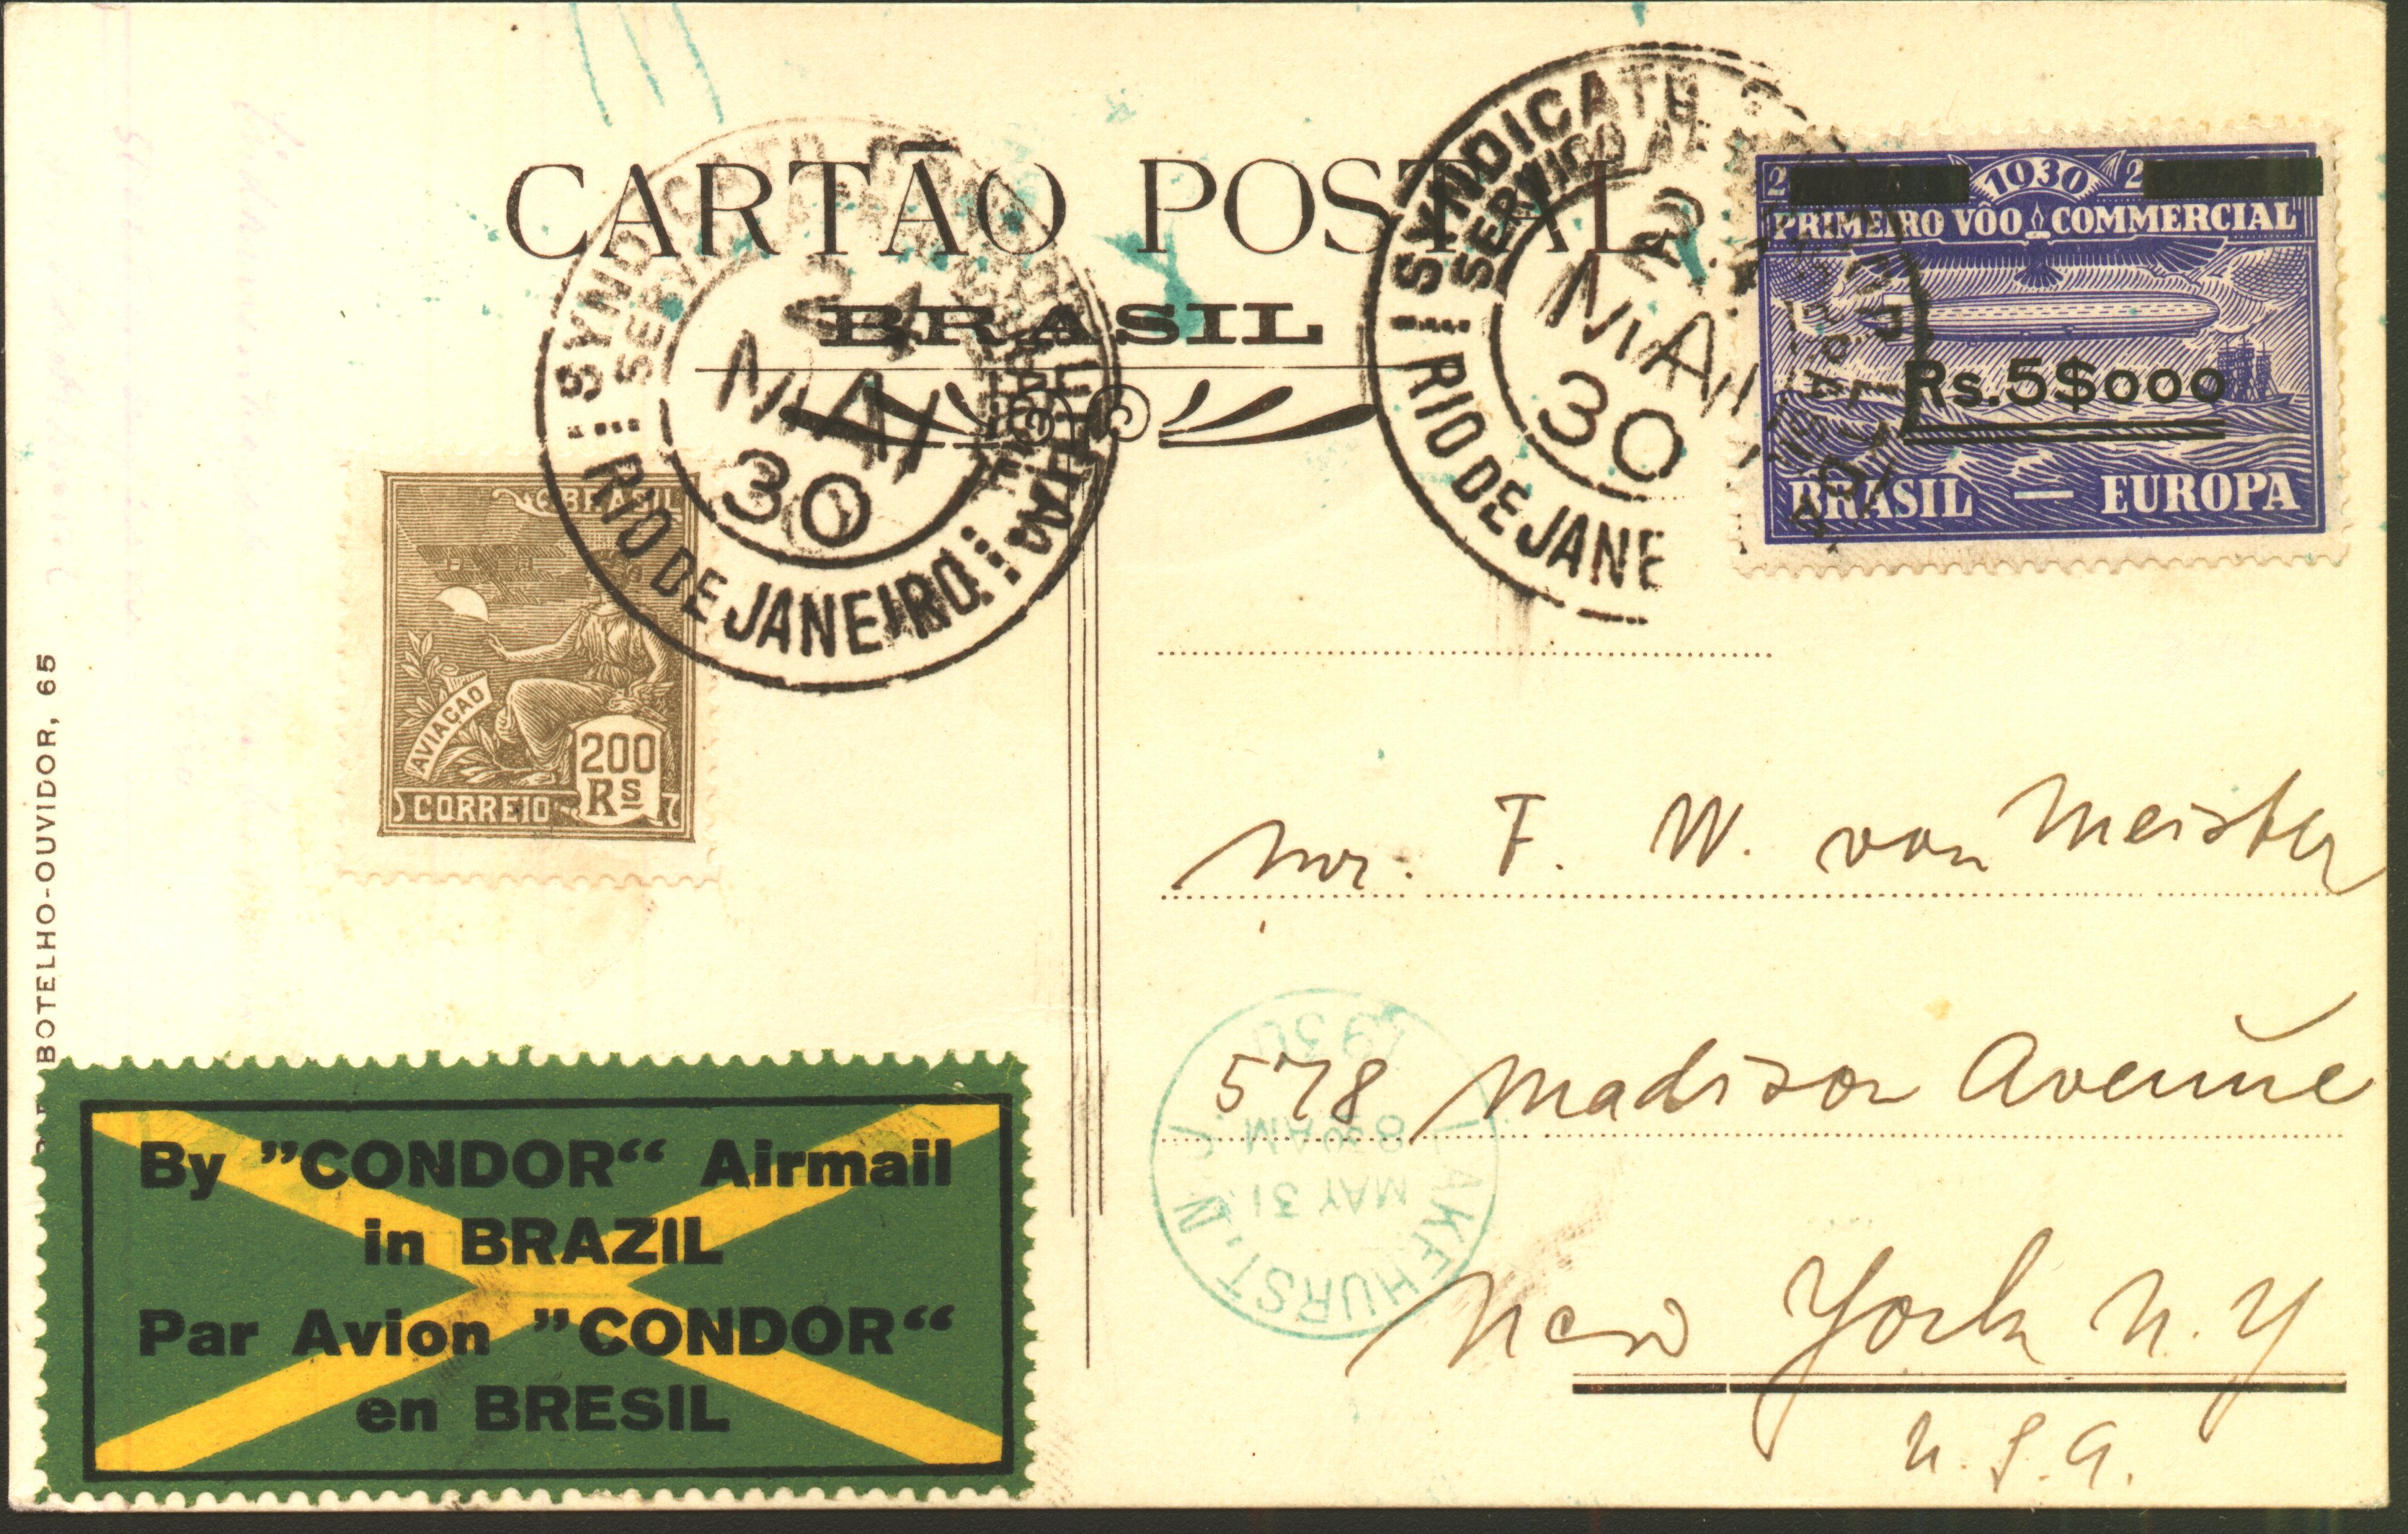 CARTÃO POSTAL
BRASIL
SYNDICATO
SERVIÇO
24
MAI
30
RIO DE JANEIRO
SYNDICATO
SERVIÇO AE
MAI
30
RIO DE JANE
1930
PRIMEIRO VÔO COMMERCIAL
Rs.5$000
BRASIL — EUROPA
BRASIL
AVIAÇÃO
200
Rs
CORREIO
BOTELHO-OUVIDOR, 65
Mr. F. W. von Meister
578 Madison Avenue
New York N.Y
U.S.A.
LAKEHURST. N. J.
MAY 31
830AM
1930
By "CONDOR" Airmail
in BRAZIL
Par Avion "CONDOR"
en BRESIL